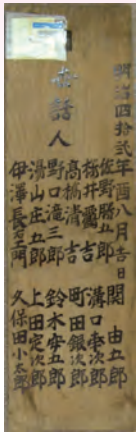 明治四拾弐年酉八月吉日
世話人
佐野勝五郎
桜井
高橋清吉
野口滝三郎
湯山庄五郎
伊澤長左ヱ門
関由五郎
溝口壱次郎
町田銀次郎
鈴木安五郎
上田定次郎
久保田小太郎